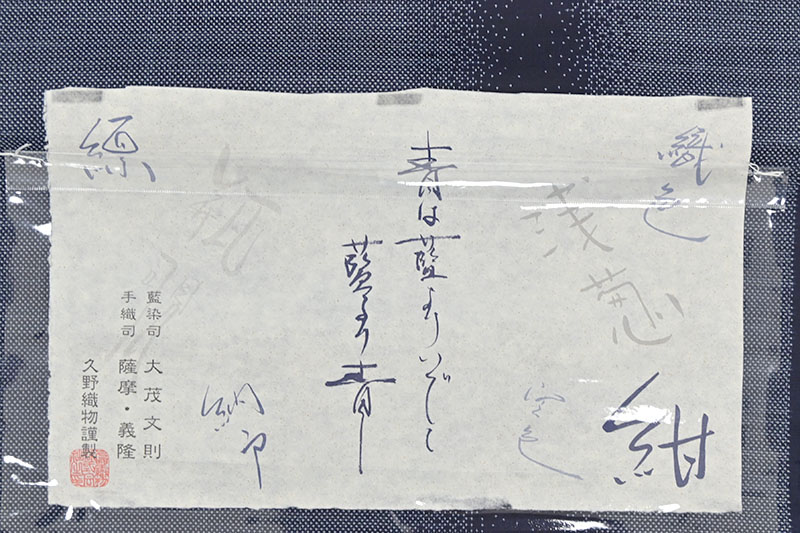 織色
浅葱
紺
空色
青は藍よりいでて
藍より青し
納戸
瓶覗
縹
藍染司 大茂文則
手織司 薩摩・義隆
久野織物謹製